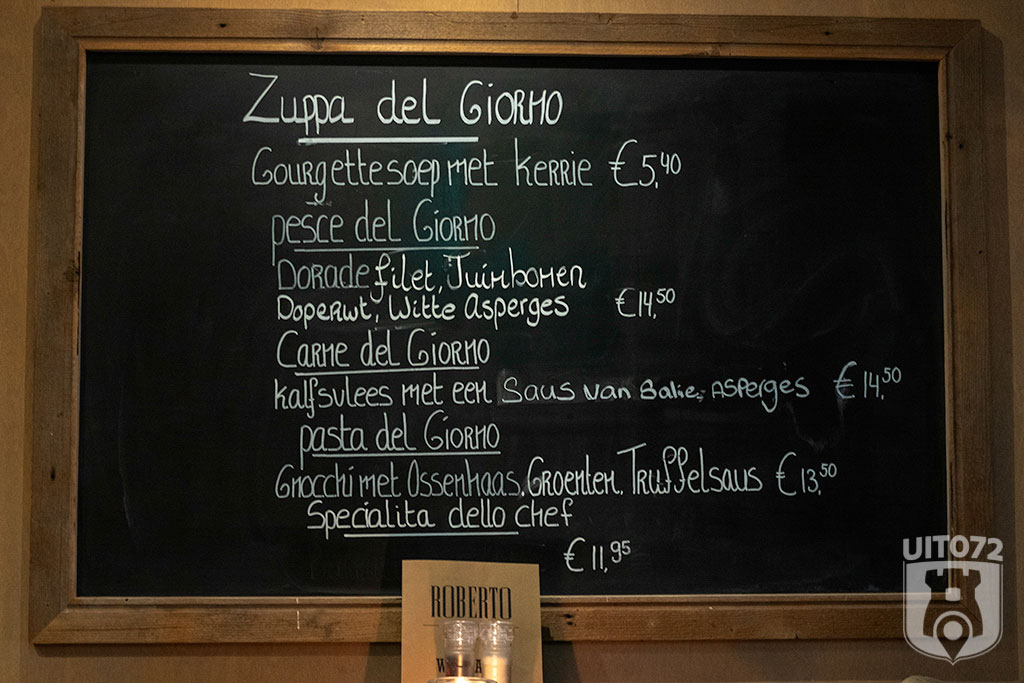 Zuppa del Giorno
Gourgettesoep met kerrie €5,40
pesce del Giorno
Dorade filet, Tuinbonen
Doperwt, Witte Asperges €14,50
Carne del Giorno
kalfsvlees met een Saus van Salie, Asperges €14,50
pasta del Giorno
Gnocchi met Ossenhaas, Groenten, Truffelsaus €13,50
Specialita dello chef
€11,95
ROBERTO
W A
UIT072